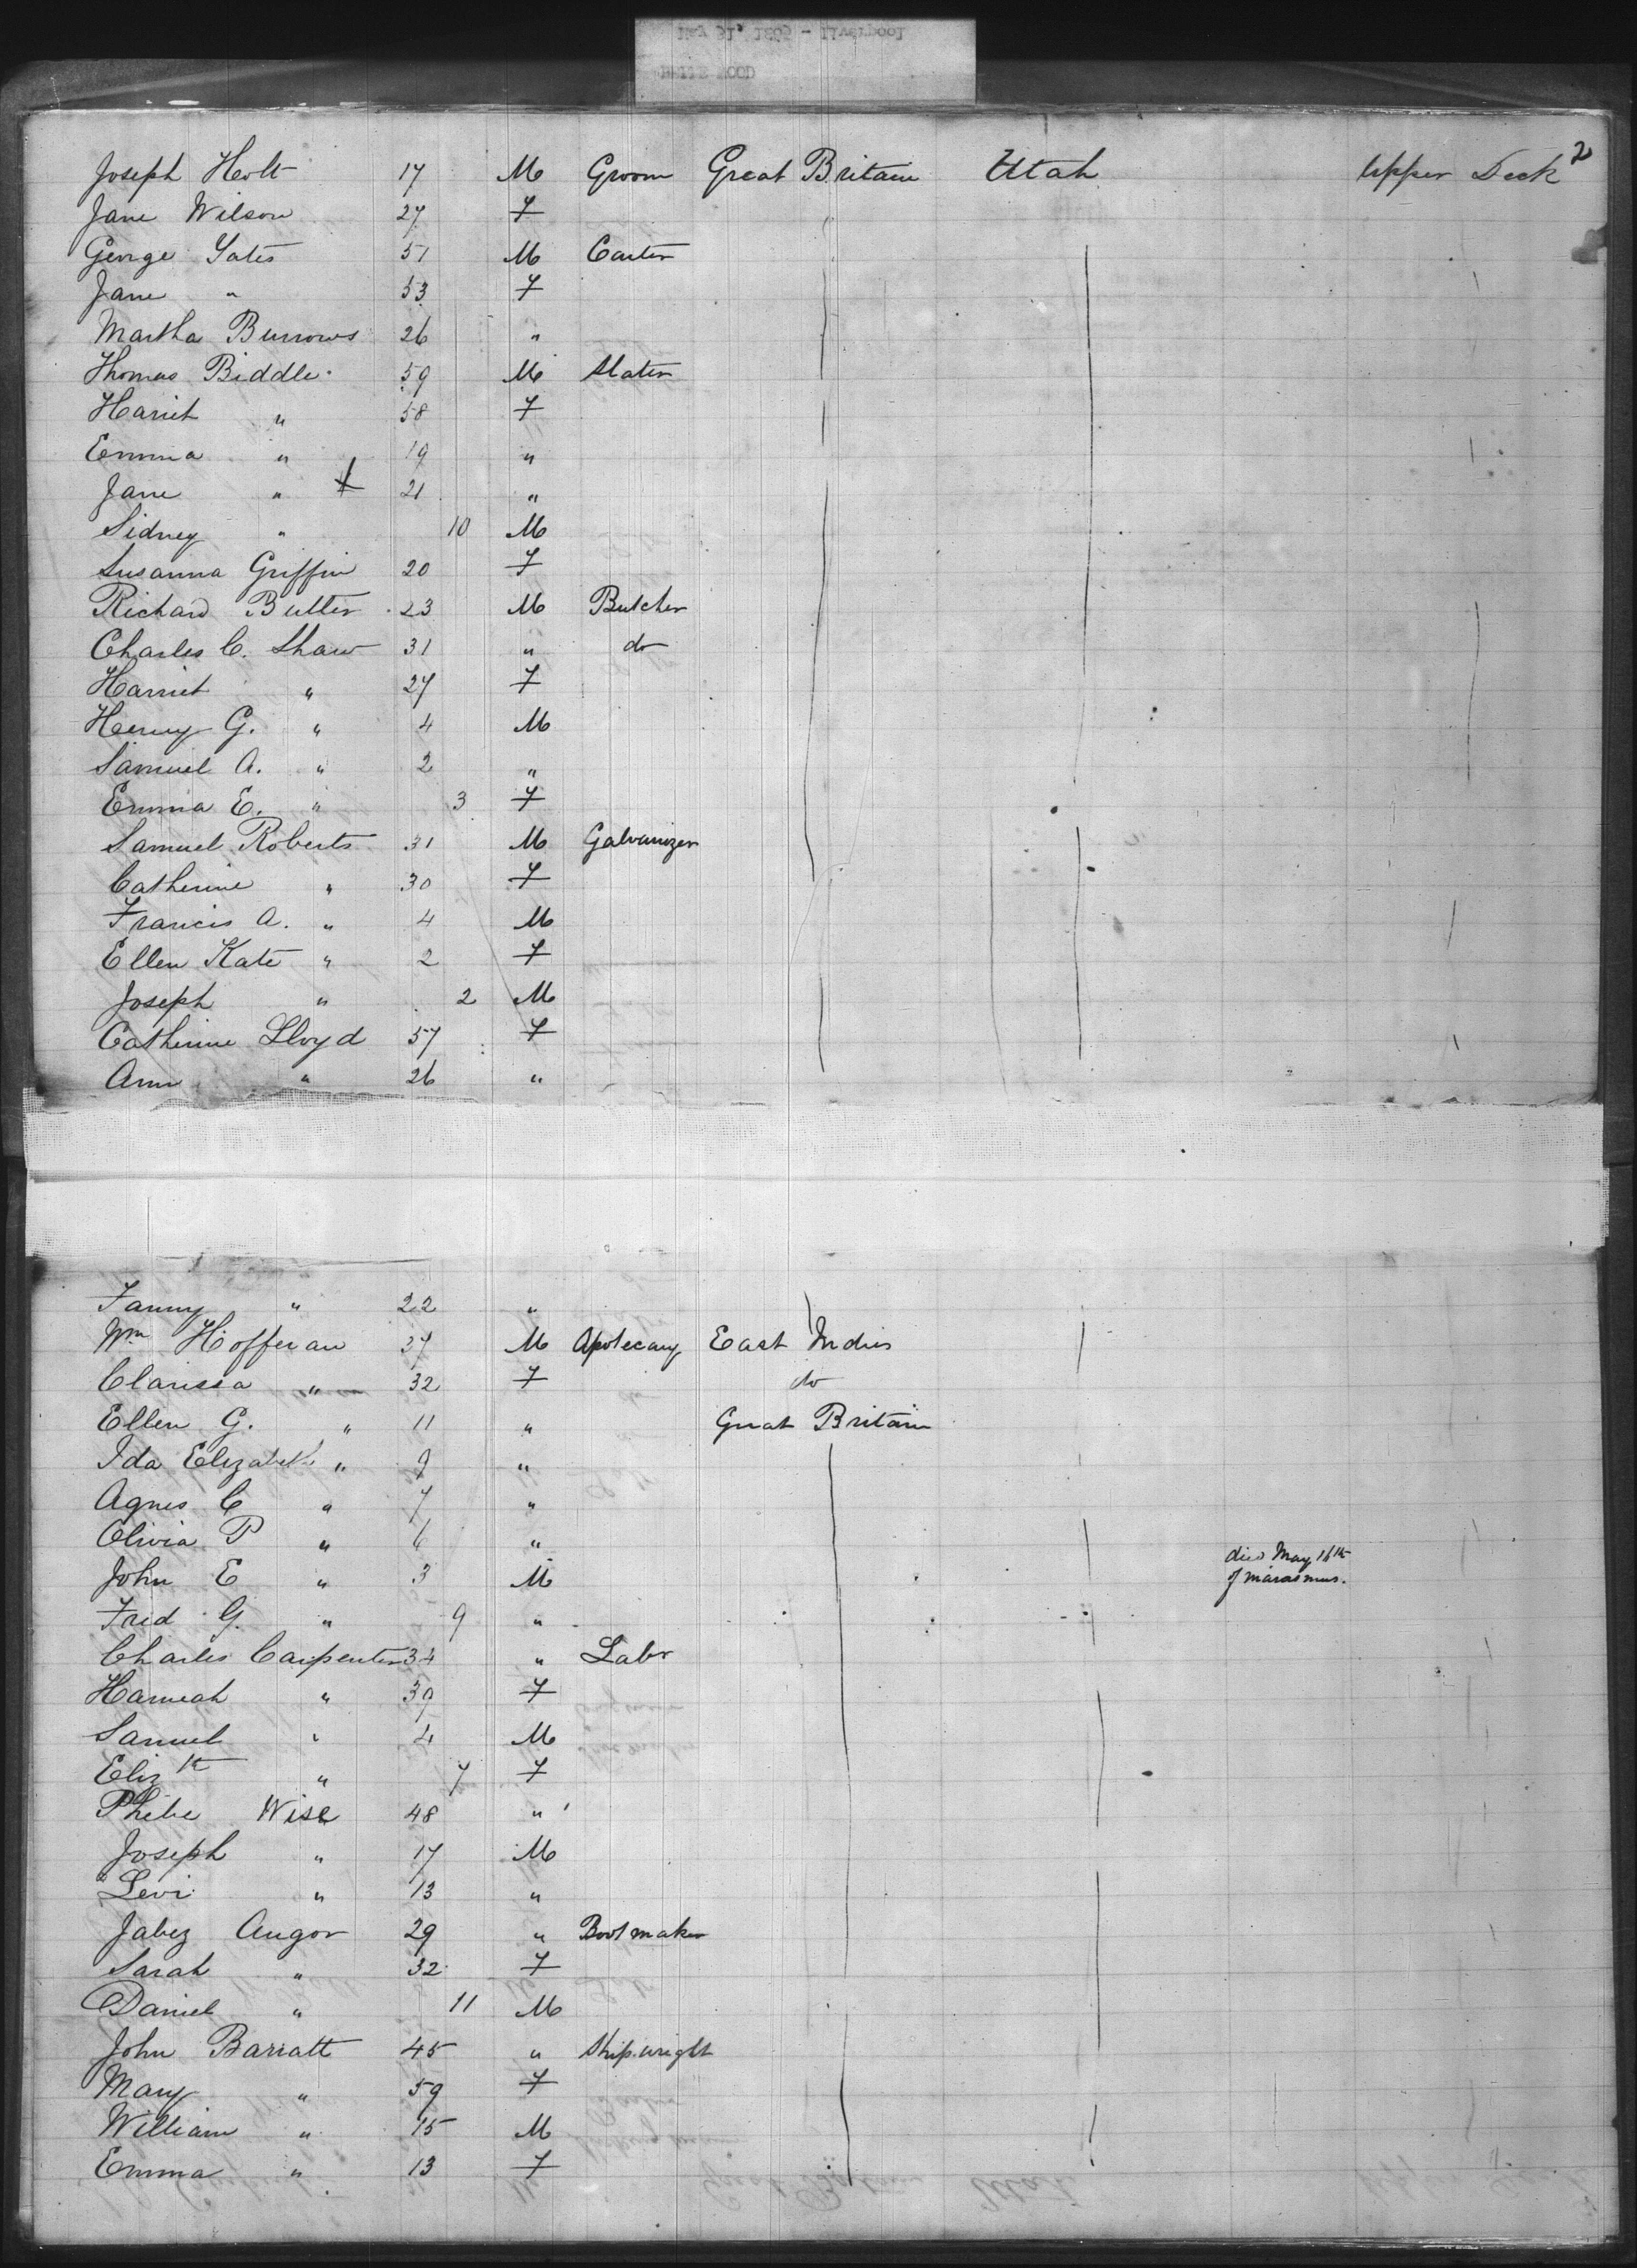 May 31, 1865 - Liverpool
BELLE WOOD
2
Joseph Holt 17 M Groom Great Britain Utah Upper Deck
Jane Wilson 27 F
George Yates 51 M Carter
Jane " 53 F
Martha Burrows 26 "
Thomas Biddle 59 M Slater
Hariet " 58 F
Emma " 19 "
Jane " 21 "
Sidney " 10 M
Susanna Griffin 20 F
Richard Butler 23 M Butcher
Charles C. Shaw 31 " do
Harriet " 27 F
Henry G. " 4 M
Samuel A. " 2 "
Emma E. " 3 F
Samuel Roberts 31 M Galvanizer
Catherine " 30 F
Francis A. " 4 M
Ellen Kate " 2 F
Joseph " 2 M
Catherine Lloyd 57 F
Ann " 26 "
Fanny " 22 "
Wm Hoffenan 37 M Apotecary East Indies
Clarissa " 32 F do
Ellen G. " 11 " Great Britain
Ida Elizabeth " 9 "
Agnes C " 7 "
Olivia P " 6 "
John E " 3 M died May 16th of marasmus.
Fred G. " 9 "
Charles Carpenter 34 " Labr
Hanneah " 39 F
Samuel " 4 M
Elizth " 7 F
Phebe Wise 48 "
Joseph " 17 M
Levi " 13 "
Jabez Augor 29 " Bootmaker
Sarah " 32 F
Daniel " 11 M
John Barratt 45 " Shipwright
Mary " 59 F
William " 15 M
Emma " 13 F